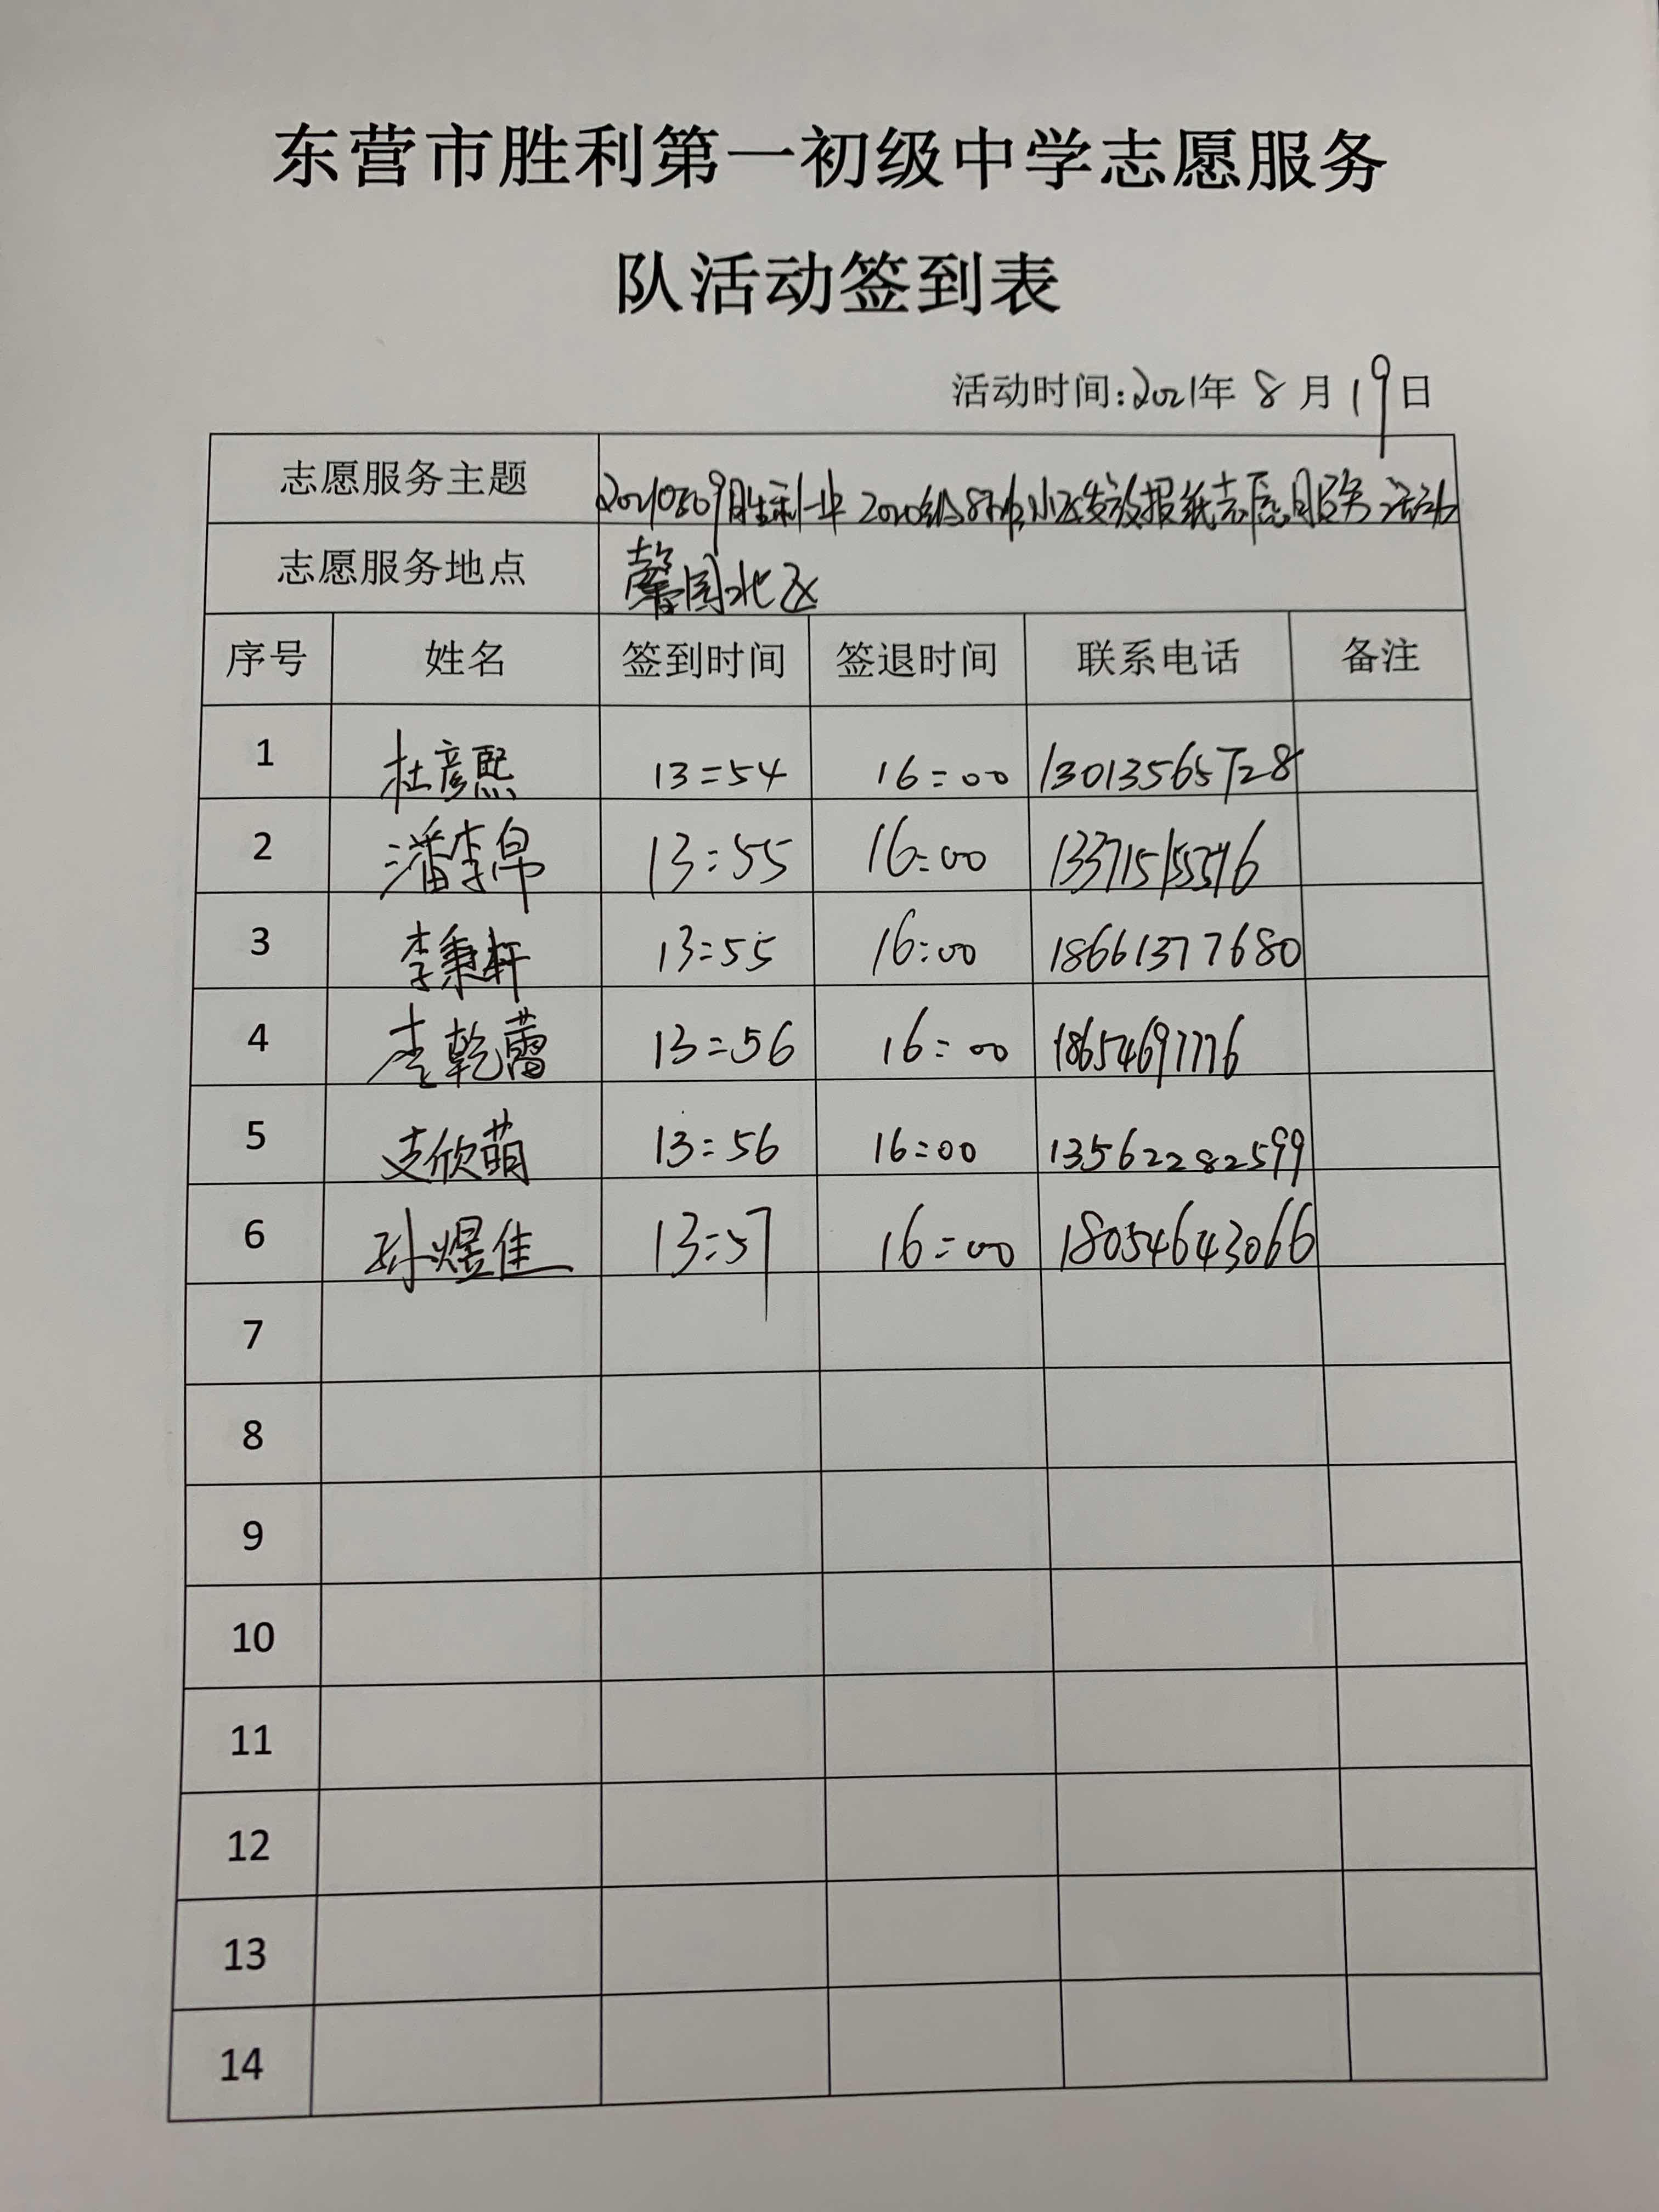 东营市胜利第一初级中学志愿服务
队活动签到表
活动时间:2021年 8 月 19日
志愿服务主题 胜利一中2020级8班 小区发放报纸志愿服务活动
志愿服务地点 馨园北区
序号 姓名 签到时间 签退时间 联系电话 备注
1 杜彦熙 13:54 16:00 13013565728
2 潘李帛 13:55 16:00
3 李秉轩 13:55 16:00 18661377680
4 李乾蕾 13:56 16:00 18654697776
5 支欣萌 13:56 16:00 13562282599
6 孙煜佳 13:57 16:00 18054643066
7
8
9
10
11
12
13
14